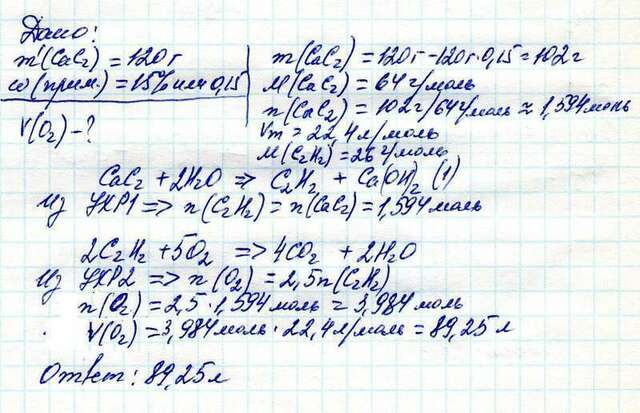 Дано:
m'(CaC₂) = 120г
ω(прим.) = 15% или 0,15
V(O₂) - ?
m(CaC₂) = 120г - 120г·0,15 = 102г
M(CaC₂) = 64г/моль
n(CaC₂) = 102г/64г/моль ≈ 1,594моль
Vm = 22,4л/моль
M(C₂H₂) = 26г/моль
CaC₂ + 2H₂O => C₂H₂ + Ca(OH)₂ (1)
Из УХР1 => n(C₂H₂) = n(CaC₂) = 1,594моль
2C₂H₂ + 5O₂ => 4CO₂ + 2H₂O
Из УХР2 => n(O₂) = 2,5n(C₂H₂)
n(O₂) = 2,5·1,594моль = 3,984моль
V(O₂) = 3,984моль·22,4л/моль = 89,25л
Ответ: 89,25л